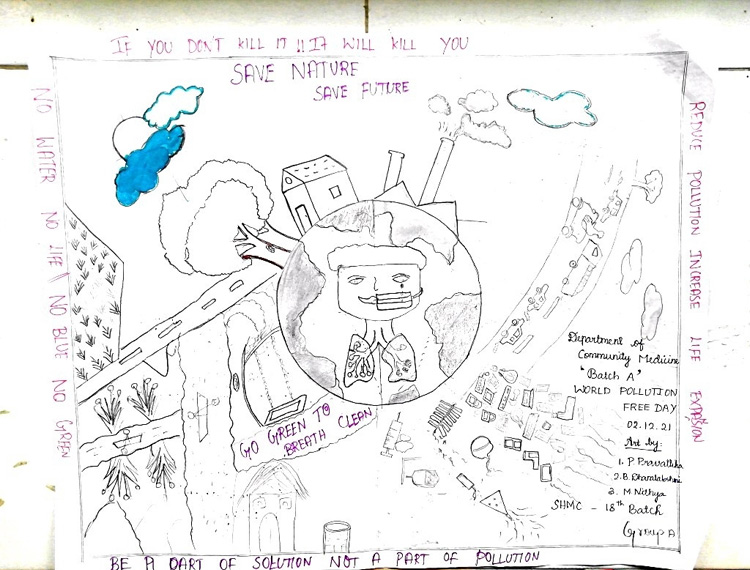 IF YOU DON'T KILL IT !! IT WILL KILL YOU
SAVE NATURE
SAVE FUTURE
NO WATER NO LIFE \ NO BLUE NO GREEN
REDUCE POLLUTION INCREASE LIFE
GO GREEN TO
BREATH CLEAN
Department of
Community Medicine
"Batch A"
WORLD POLLUTION
FREE DAY
02.12.21
Art by:
1. P. Pravathika
2. B. Dhanalakshmi
3. M. Nithya
SHMC - 18th Batch
Group A
BE A PART OF SOLUTION NOT A PART OF POLLUTION